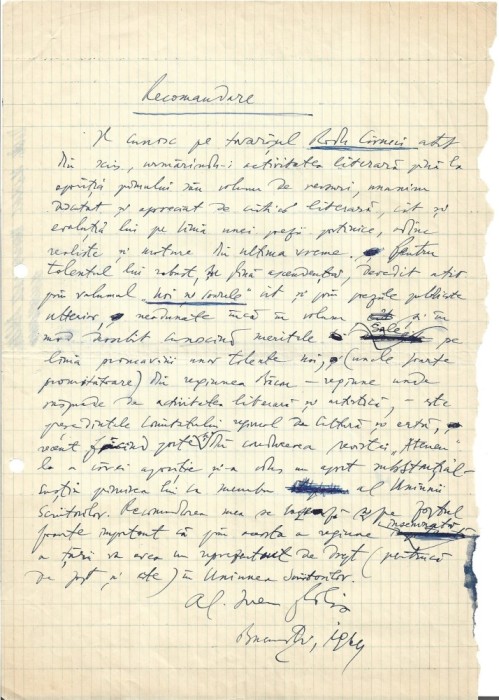 Recomandare
Îl cunosc pe tovarășul Radu Cârneci atât
din scris, urmărindu-i activitatea literară până la
apariția primului său volum de versuri, unanim
și apreciat de critica literară, cât și
evoluția lui pe linia unei poetice,
realiste și mature din ultima vreme. Pentru
talentul lui robust, dovedit atât
prin volumul "Noi și soarele" cât și prin poeziile publicate
ulterior, neadunate încă în volum și în
mod deosebit cunoscând meritele sale pe
linia promovării unor talente noi, (unele foarte
promițătoare) din regiunea Bacău – regiune unde
răspunde de activitatea literară și artistică, – este
președintele Comitatului regional de cultură și artă,
recent făcând parte din conducerea revistei "Ateneu"
la a cărei apariție și-a adus un aport substanțial –
susțin primirea lui ca membru al Uniunii
Scriitorilor. Recomandarea mea se pe faptul
foarte important că prin aceasta o regiune însemnată
a țării va avea un reprezentant de drept (pentru că
de fapt și este) în Uniunea Scriitorilor.
Al. Ivan Ghilia
București, 1964